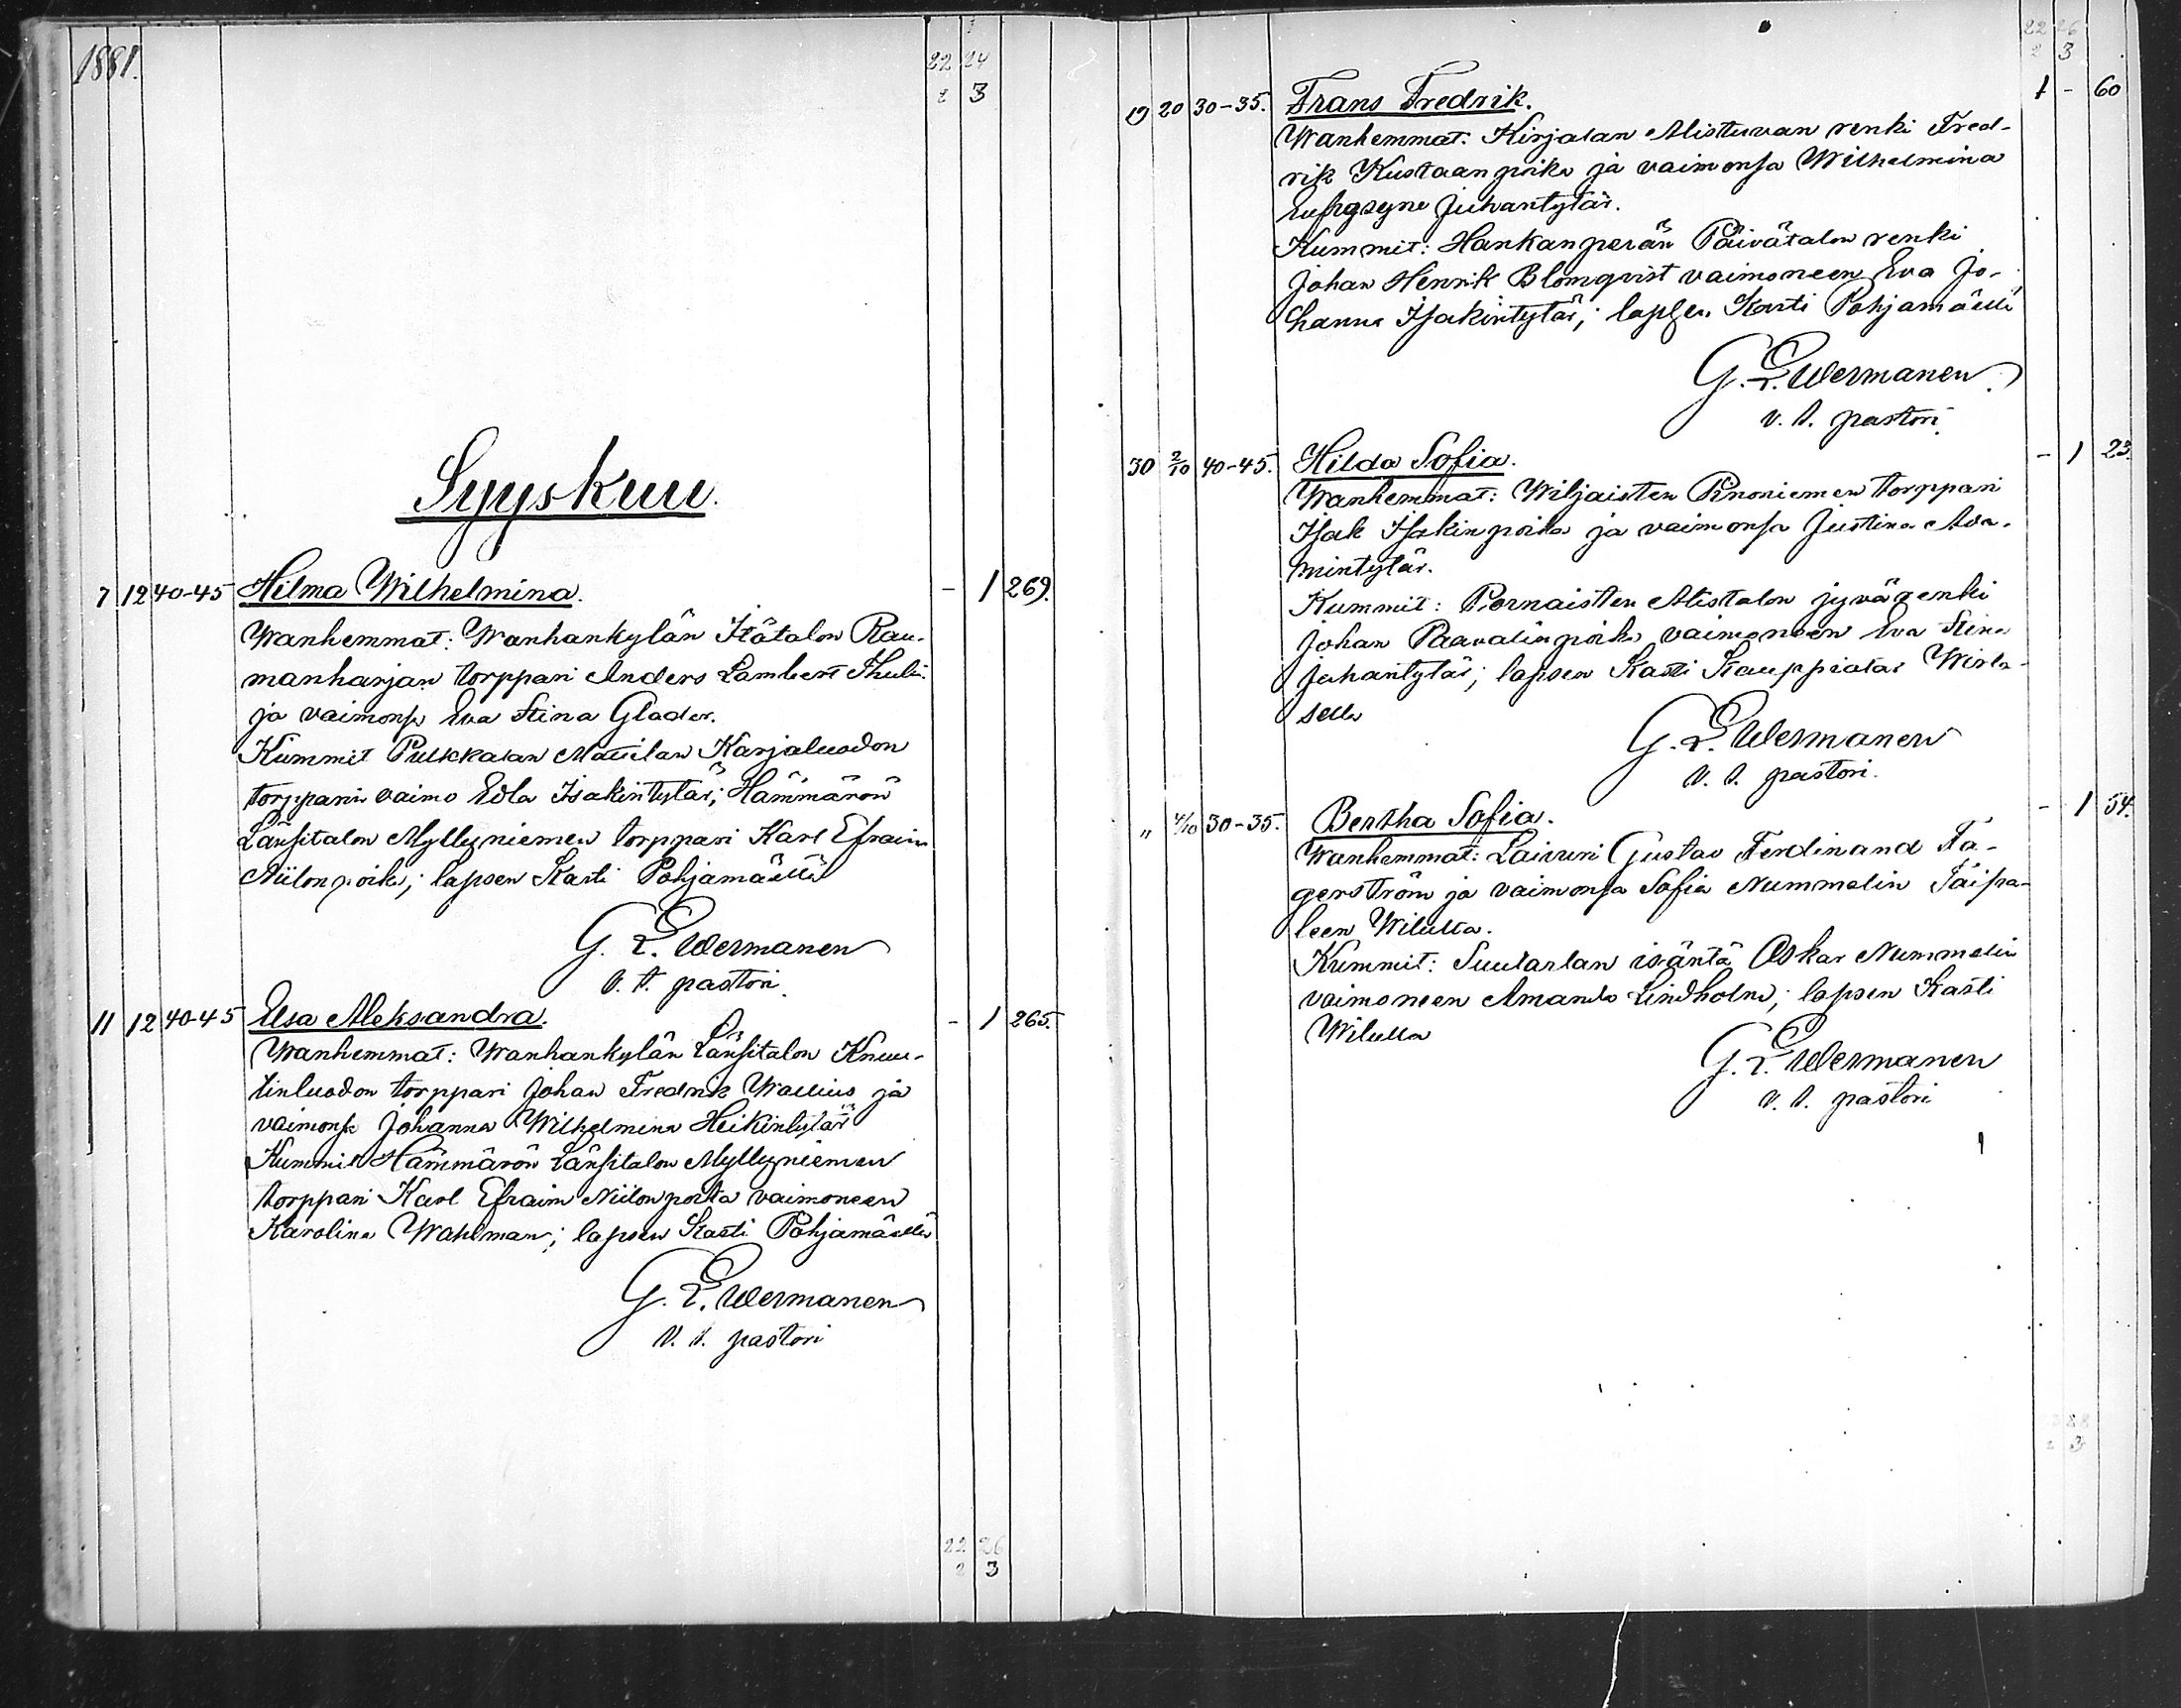 1881.
22 24
2 3
Syyskuu.
7 12 40-45 Hilma Wilhelmina. - 1 269.
Wanhemmat: Wanhankylän Itätalon Rau-
manharjan torppari Anders Lambert Thulin
ja vaimonsa Eva Stina Glader.
Kummit Pulkkalan Mattilan Karjaluodon
torpparin vaimo Edla Isakintytär; Hämmärön
Länsitalon Myllyniemen torppari Karl Efraim
Niilonpoika; lapsen Kasti Pohjamäellä
G. E. Wermanen
v. t. pastori.
11 12 40-45 Elsa Aleksandra. - 1 265.
Wanhemmat: Wanhankylän Länsitalon Knuu-
tinluodon torppari Johan Fredrik Wallius ja
vaimonsa Johanna Wilhelmina Heikintytär
Kummit Hämmärön Länsitalon Myllyniemen
torppari Karl Efraim Niilonpoika vaimoneen
Karolina Wahlman; lapsen Kasti Pohjamäellä
G. E. Wermanen
v. t. pastori
22 26
2 3
22 26
2 3
19 20 30-35. Frans Fredrik. 1 - 60
Wanhemmat: Kirjalan Alistuvan renki Fred-
rik Kustaanpoika ja vaimonsa Wilhelmina
Eufrosyne Juhantytär.
Kummit: Hankanperän Päivätalon renki
Johan Henrik Blomqvist vaimoneen Eva Jo-
hanna Isakintytär; lapsen Kasti Pohjamäellä
G. E. Wermanen
v. t. pastori.
30 2/10 40-45. Hilda Sofia. - 1 23.
Wanhemmat: Wiljaisten Pinoniemen torppari
Isak Isakinpoika ja vaimonsa Justina Ada-
mintytär.
Kummit: Pornaisten Alistalon jyvärenki
Johan Paavalinpoika vaimoneen Eva Stina
Juhantytär; lapsen Kasti Kauppiatar Wirta-
sella
G. E. Wermanen
v. t. pastori.
" 4/10 30-35. Bertha Sofia. - 1 54.
Wanhemmat: Laivuri Gustav Ferdinand Fa-
gerström ja vaimonsa Sofia Nummelin Taipa-
leen Wilulla.
Kummit: Suutarlan isäntä Oskar Nummelin
vaimoneen Amanda Lindholm; lapsen Kasti
Wilulla
G. E. Wermanen
v. t. pastori
28
2 3